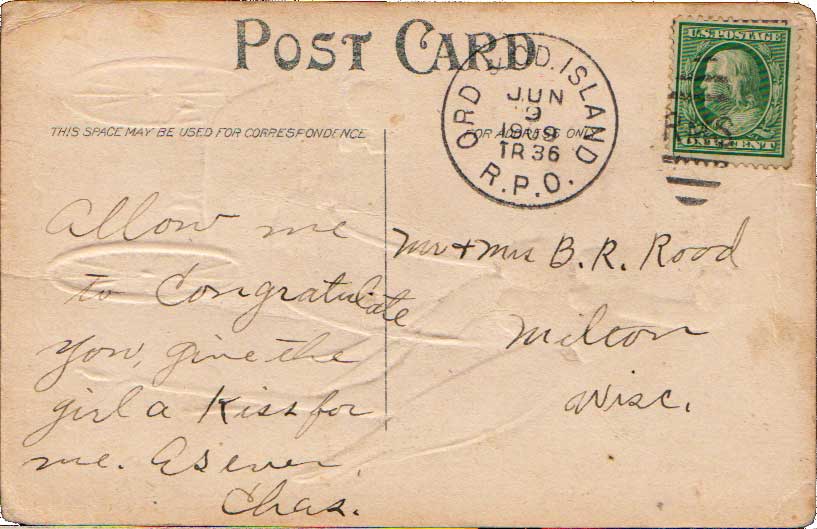 POST CARD
THIS SPACE MAY BE USED FOR CORRESPONDENCE
FOR ADDRESS ONLY
ORD ISLAND
JUN
9
1909
TR36
R.P.O.
U.S. POSTAGE
ONE CENT
Allow me
to Congratulate
you, give the
girl a Kiss for
me. As ever,
Chas.
Mr + Mrs B. R. Rood
Milton
Wisc.